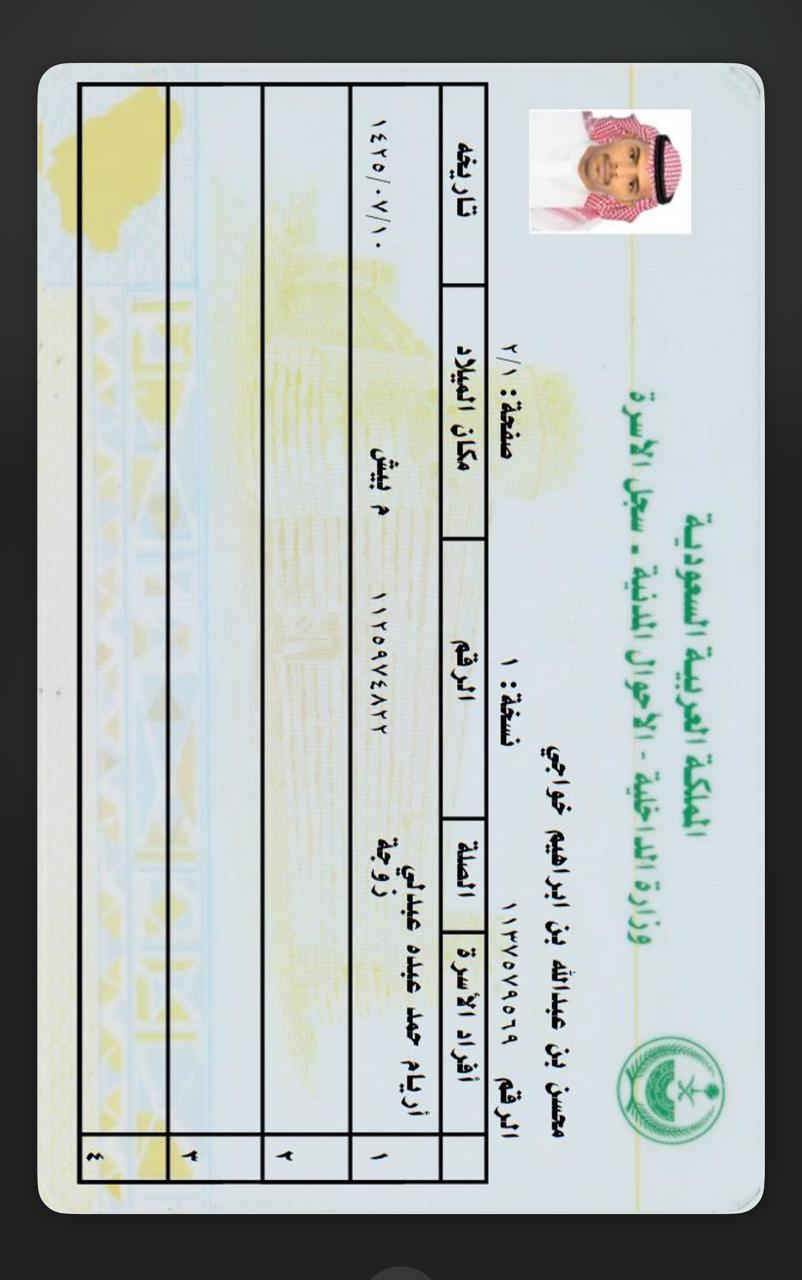 المملكة العربية السعودية
وزارة الداخلية - الأحوال المدنية - سجل الأسرة
محسن بن عبدالله بن ابراهيم خواجي
الرقم ١١٣٧٥٧٩٥٦٩ نسخة: ١ صفحة: ٢/١
أفراد الأسرة الصلة الرقم مكان الميلاد تاريخه
١ أريام حمد عبده عبدلي زوجة ١١٢٥٩٧٤٨٢٢ م بيش ١٤٢٥/٠٧/١٠
٢
٣
٤